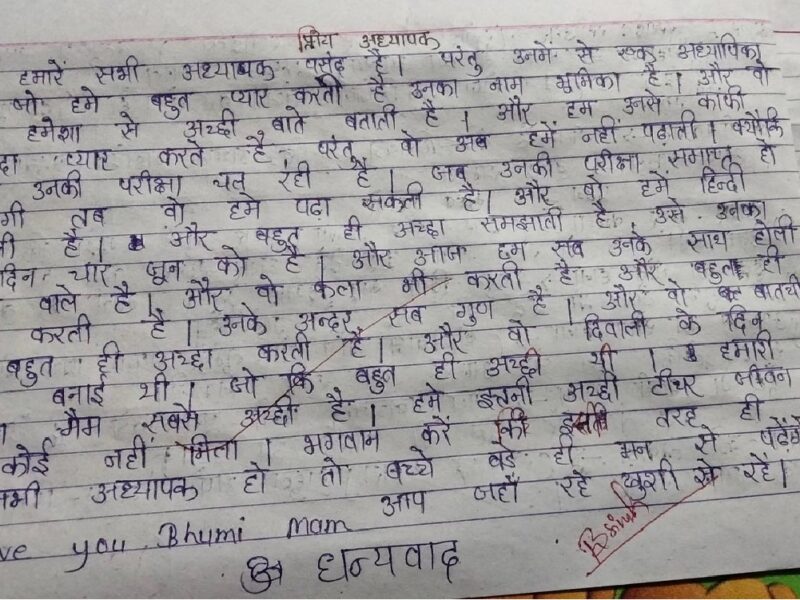 प्रिय अध्यापक
हमारे सभी अध्यापक पसंद है। परंतु उनमें से एक अध्यापिका
जो हमे बहुत प्यार करती है उनका नाम भुमिका है। और वो
हमेशा से अच्छी बाते बताती है। और हम उनसे काफी
प्यार करते है परंतु वो अब हमें नहीं पढ़ाती। क्योंकि
उनकी परीक्षा चल रही है। जब उनकी परीक्षा समाप्त हो
तब वो हमे पढा सकती है। और वो हमें हिन्दी
है। और बहुत ही अच्छा समझाती है उसे उनका
दिन चार जून को है। और आज हम सब उनके साथ होली
वाले है। और वो कला भी करती है और बहुत ही
करती है। उनके अन्दर सब गुण है। और वो बातची
बहुत ही अच्छा करती है। और वो दिवाली के दिन
बनाई थी। जो कि बहुत ही अच्छी थी। हमारी
मैम सबसे अच्छी है। हमे इतनी अच्छी टीचर जीवन
कोई नहीं मिला। भगवाम करें की इसी तरह ही
अध्यापक हो तो बच्चे बडे ही मन से पढ़ेंगे
आप जहाँ रहे खुशी से रहे।
ve you Bhumi Mam
धन्यवाद